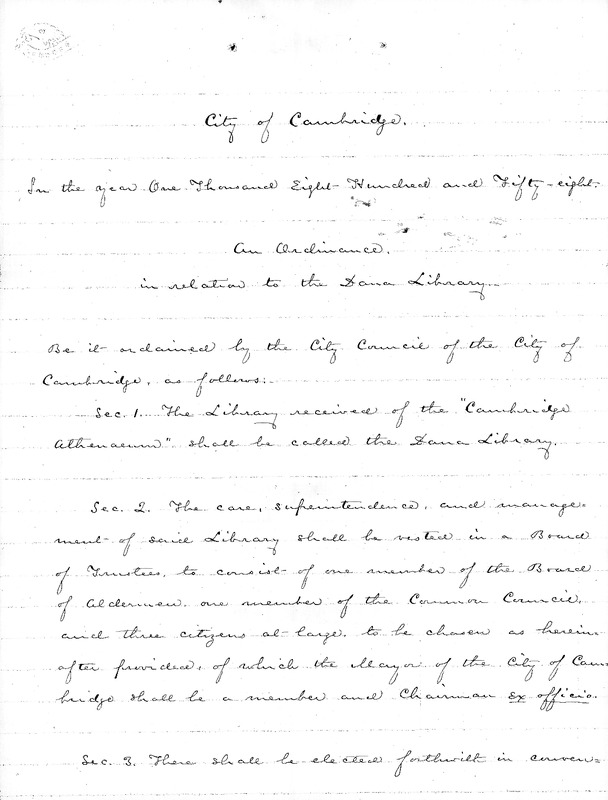 City of Cambridge.
In the year One Thousand Eight Hundred and Fifty-eight.
An Ordinance.
in relation to the Dana Library.
Be it ordained by the City Council of the City of
Cambridge, as follows:
Sec. 1. The Library received of the "Cambridge
Athenaeum" shall be called the Dana Library.
Sec. 2. The care, superintendence, and manage-
ment of said Library shall be vested in a Board
of Trustees, to consist of one member of the Board
of Aldermen, one member of the Common Council,
and three citizens at large, to be chosen as herein-
after provided, of which the Mayor of the City of Cam-
bridge shall be a member and Chairman ex officio.
Sec. 3. There shall be elected forthwith in conven=